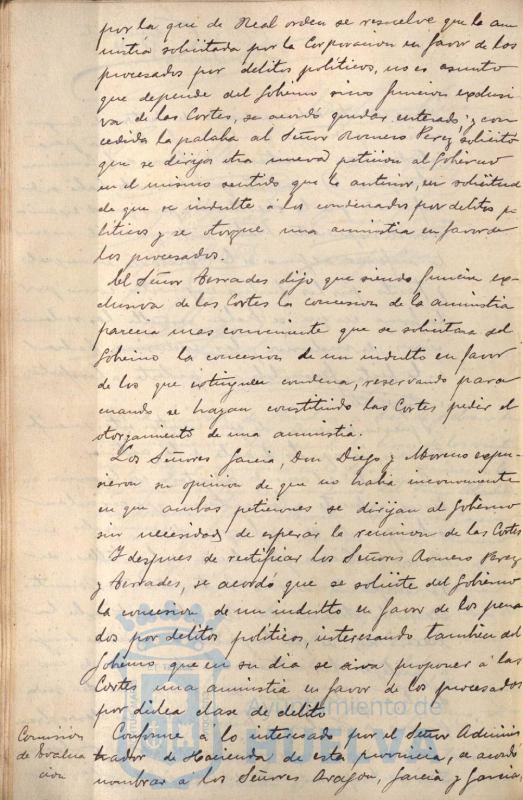 por la que de Real orden se resuelve que la am
nistia solicitada por la Corporacion en favor de los
procesados por delitos politicos, no es asunto
que depende del Gobierno sino funcion exclusi
va de las Cortes, se acordó quedar enterado; y con
cedida la palabra al Señor Romero Perez solicitó
que se dirija otra nueva peticion al Gobierno
en el mismo sentido que la anterior, en solicitud
de que se indulte á los condenados por delitos po
liticos y se otorgue una amnistia en favor de
los procesados.
El Señor Terrades dijo que siendo funcion ex-
clusiva de las Cortes la concesion de la amnistia
parecia mas conveniente que se solicitara del
Gobierno la concesion de un indulto en favor
de los que extinguen condena, reservando para
cuando se hayan constituido las Cortes pedir el
otorgamiento de una amnistia.
Los Señores Garcia, Don Diego y Moreno expu-
sieron su opinion de que no habia inconveniente
en que ambas peticiones se dirijan al Gobierno
sin necesidad de esperar la reunion de las Cortes
Y despues de rectificar los Señores Romero Perez
y Terrades, se acordó que se solicite del Gobierno
la concesion de un indulto en favor de los pena
dos por delitos politicos, interesando tambien del
Gobierno que en su dia se sirva proponer á las
Cortes una amnistia en favor de los procesados
por dicha clase de delito
Comision
de Evalua
cion
Conforme á lo interesado por el Señor Adminis
trador de Hacienda de esta provincia, se acordó
nombrar á los Señores Aragon, Garcia y Garcia,
Ayuntamiento de
HUELVA